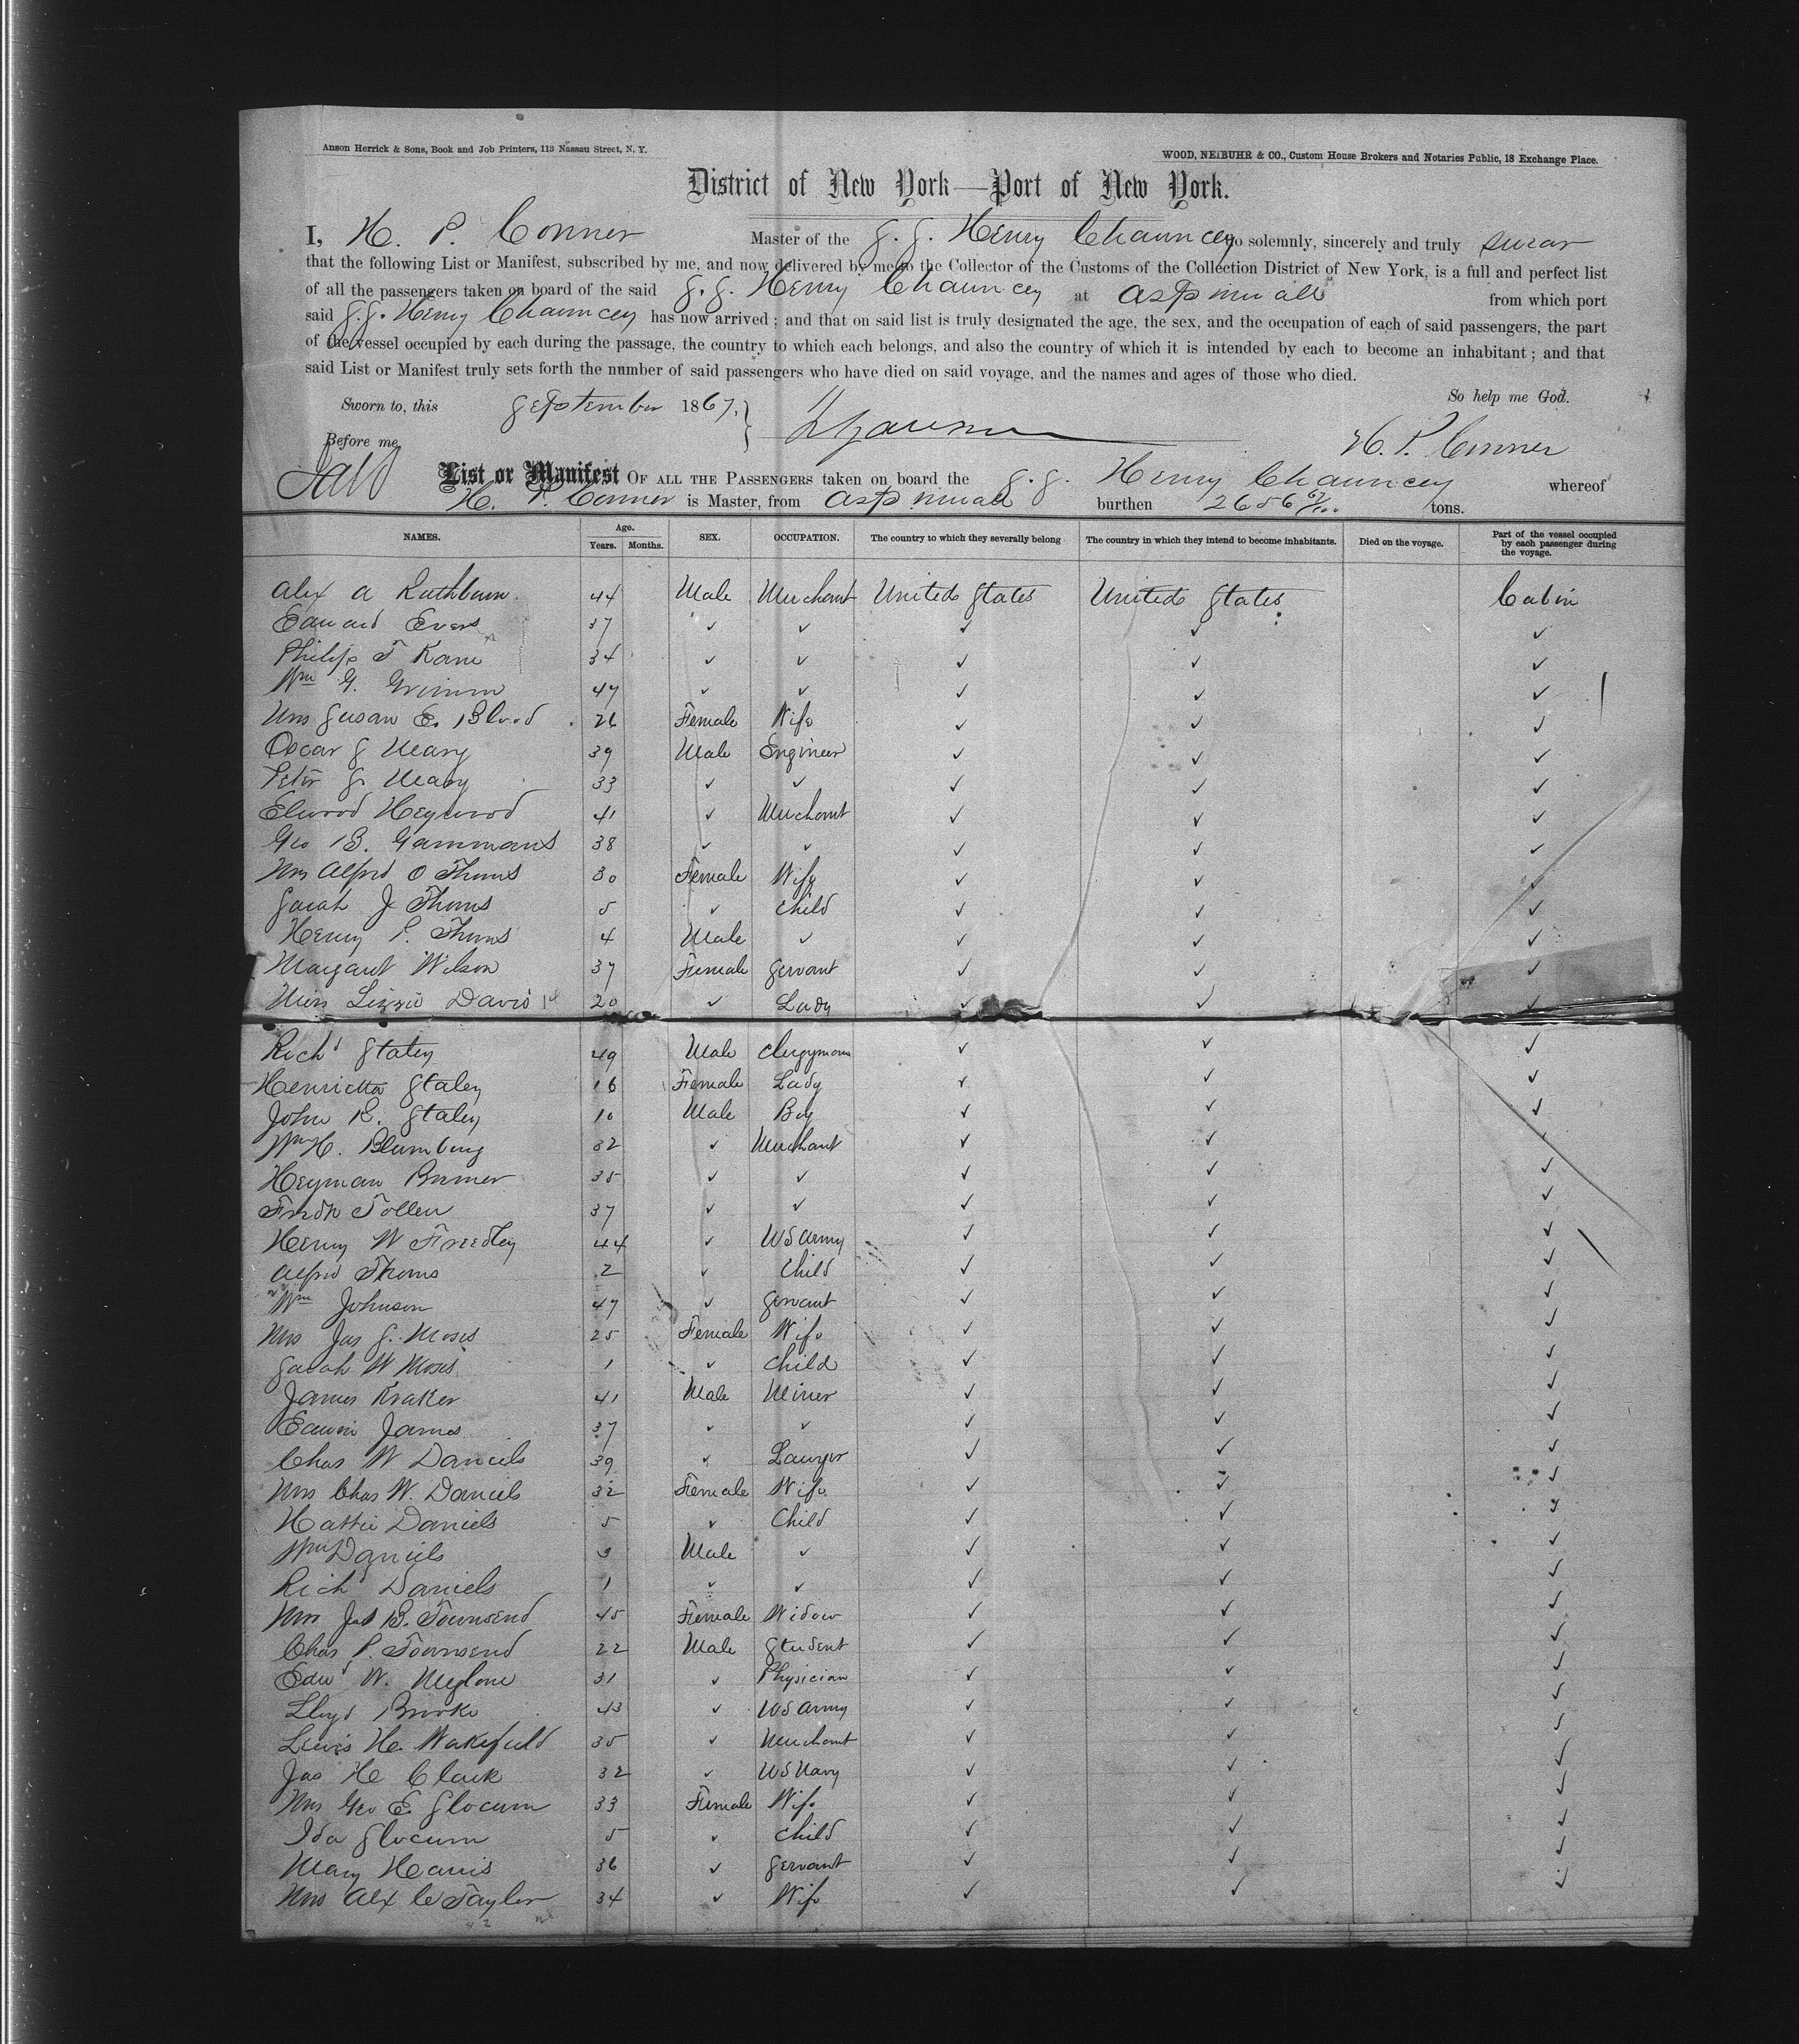 Anson Herrick & Sons, Book and Job Printers, 113 Nassau Street, N. Y.
WOOD, NEIBUHR & CO., Custom House Brokers and Notaries Public, 18 Exchange Place.
District of New York—Port of New York.
I, H. P. Conner Master of the S. S. Henry Chauncey do solemnly, sincerely and truly swear
that the following List or Manifest, subscribed by me, and now delivered by me to the Collector of the Customs of the Collection District of New York, is a full and perfect list
of all the passengers taken on board of the said S. S. Henry Chauncey at Aspinwall from which port
said S.S. Henry Chauncey has now arrived; and that on said list is truly designated the age, the sex, and the occupation of each of said passengers, the part
of the vessel occupied by each during the passage, the country to which each belongs, and also the country of which it is intended by each to become an inhabitant; and that
said List or Manifest truly sets forth the number of said passengers who have died on said voyage, and the names and ages of those who died.
So help me God.
Sworn to, this September 1867,
H. P. Conner
Before me
List or Manifest OF ALL THE PASSENGERS taken on board the S. S. Henry Chauncey whereof
H. P. Conner is Master, from Aspinwall burthen 2656 tons.
NAMES. Age. Years. Months. SEX. OCCUPATION. The country to which they severally belong The country in which they intend to become inhabitants. Died on the voyage. Part of the vessel occupied by each passenger during the voyage.
Alex A Rathburn 44 Male Merchant United States United States Cabin
Edward Evers 37 ✓ ✓ ✓ ✓ ✓
Philip T Kane 34 ✓ ✓ ✓ ✓ ✓
Wm G. Grimm 47 ✓ ✓ ✓ ✓ ✓
Mrs Susan E. Blood 26 Female Wife ✓ ✓ ✓
Oscar S Meary 39 Male Engineer ✓ ✓ ✓
Peter S. Meary 33 ✓ ✓ ✓ ✓ ✓
Elwood Heywood 41 ✓ Merchant ✓ ✓ ✓
Geo B. Gammans 38 ✓ ✓ ✓ ✓ ✓
Mrs Alfred O Thoms 30 Female Wife ✓ ✓ ✓
Sarah J Thoms 5 ✓ Child ✓ ✓ ✓
Henry P. Thoms 4 Male ✓ ✓ ✓ ✓
Margaret Wilson 37 Female Servant ✓ ✓ ✓
Miss Lizzie Davis 20 ✓ Lady ✓ ✓ ✓
Richd Staley 49 Male Clergyman ✓ ✓ ✓
Henrietta Staley 16 Female Lady ✓ ✓ ✓
John B. Staley 10 Male Boy ✓ ✓ ✓
Wm H. Blumburg 32 ✓ Merchant ✓ ✓ ✓
Heyman Bremer 35 ✓ ✓ ✓ ✓ ✓
Fredk Tollen 37 ✓ ✓ ✓ ✓ ✓
Henry W Freedley 44 ✓ US Army ✓ ✓ ✓
Alfred Thoms 2 ✓ Child ✓ ✓ ✓
Wm Johnson 47 ✓ Servant ✓ ✓ ✓
Mrs Jas S. Moses 25 Female Wife ✓ ✓ ✓
Sarah W Moses 1 ✓ Child ✓ ✓ ✓
James Kraker 41 Male Miner ✓ ✓ ✓
Edwin James 37 ✓ ✓ ✓ ✓ ✓
Chas W Daniels 39 ✓ Lawyer ✓ ✓ ✓
Mrs Chas W. Daniels 32 Female Wife ✓ ✓ ✓
Hattie Daniels 5 ✓ Child ✓ ✓ ✓
Wm Daniels 3 Male ✓ ✓ ✓ ✓
Richd Daniels 1 ✓ ✓ ✓ ✓ ✓
Mrs Jas B. Townsend 45 Female Widow ✓ ✓ ✓
Chas P. Townsend 22 Male Student ✓ ✓ ✓
Edwd W. Meglone 31 ✓ Physician ✓ ✓ ✓
Lloyd Brooke 43 ✓ US Army ✓ ✓ ✓
Lewis H. Wakefield 35 ✓ Merchant ✓ ✓ ✓
Jas H Clark 32 ✓ US Navy ✓ ✓ ✓
Mrs Geo E. Slocum 33 Female Wife ✓ ✓ ✓
Ida Slocum 5 ✓ Child ✓ ✓ ✓
Mary Harris 36 ✓ Servant ✓ ✓ ✓
Mrs Alex C Taylor 34 ✓ Wife ✓ ✓ ✓